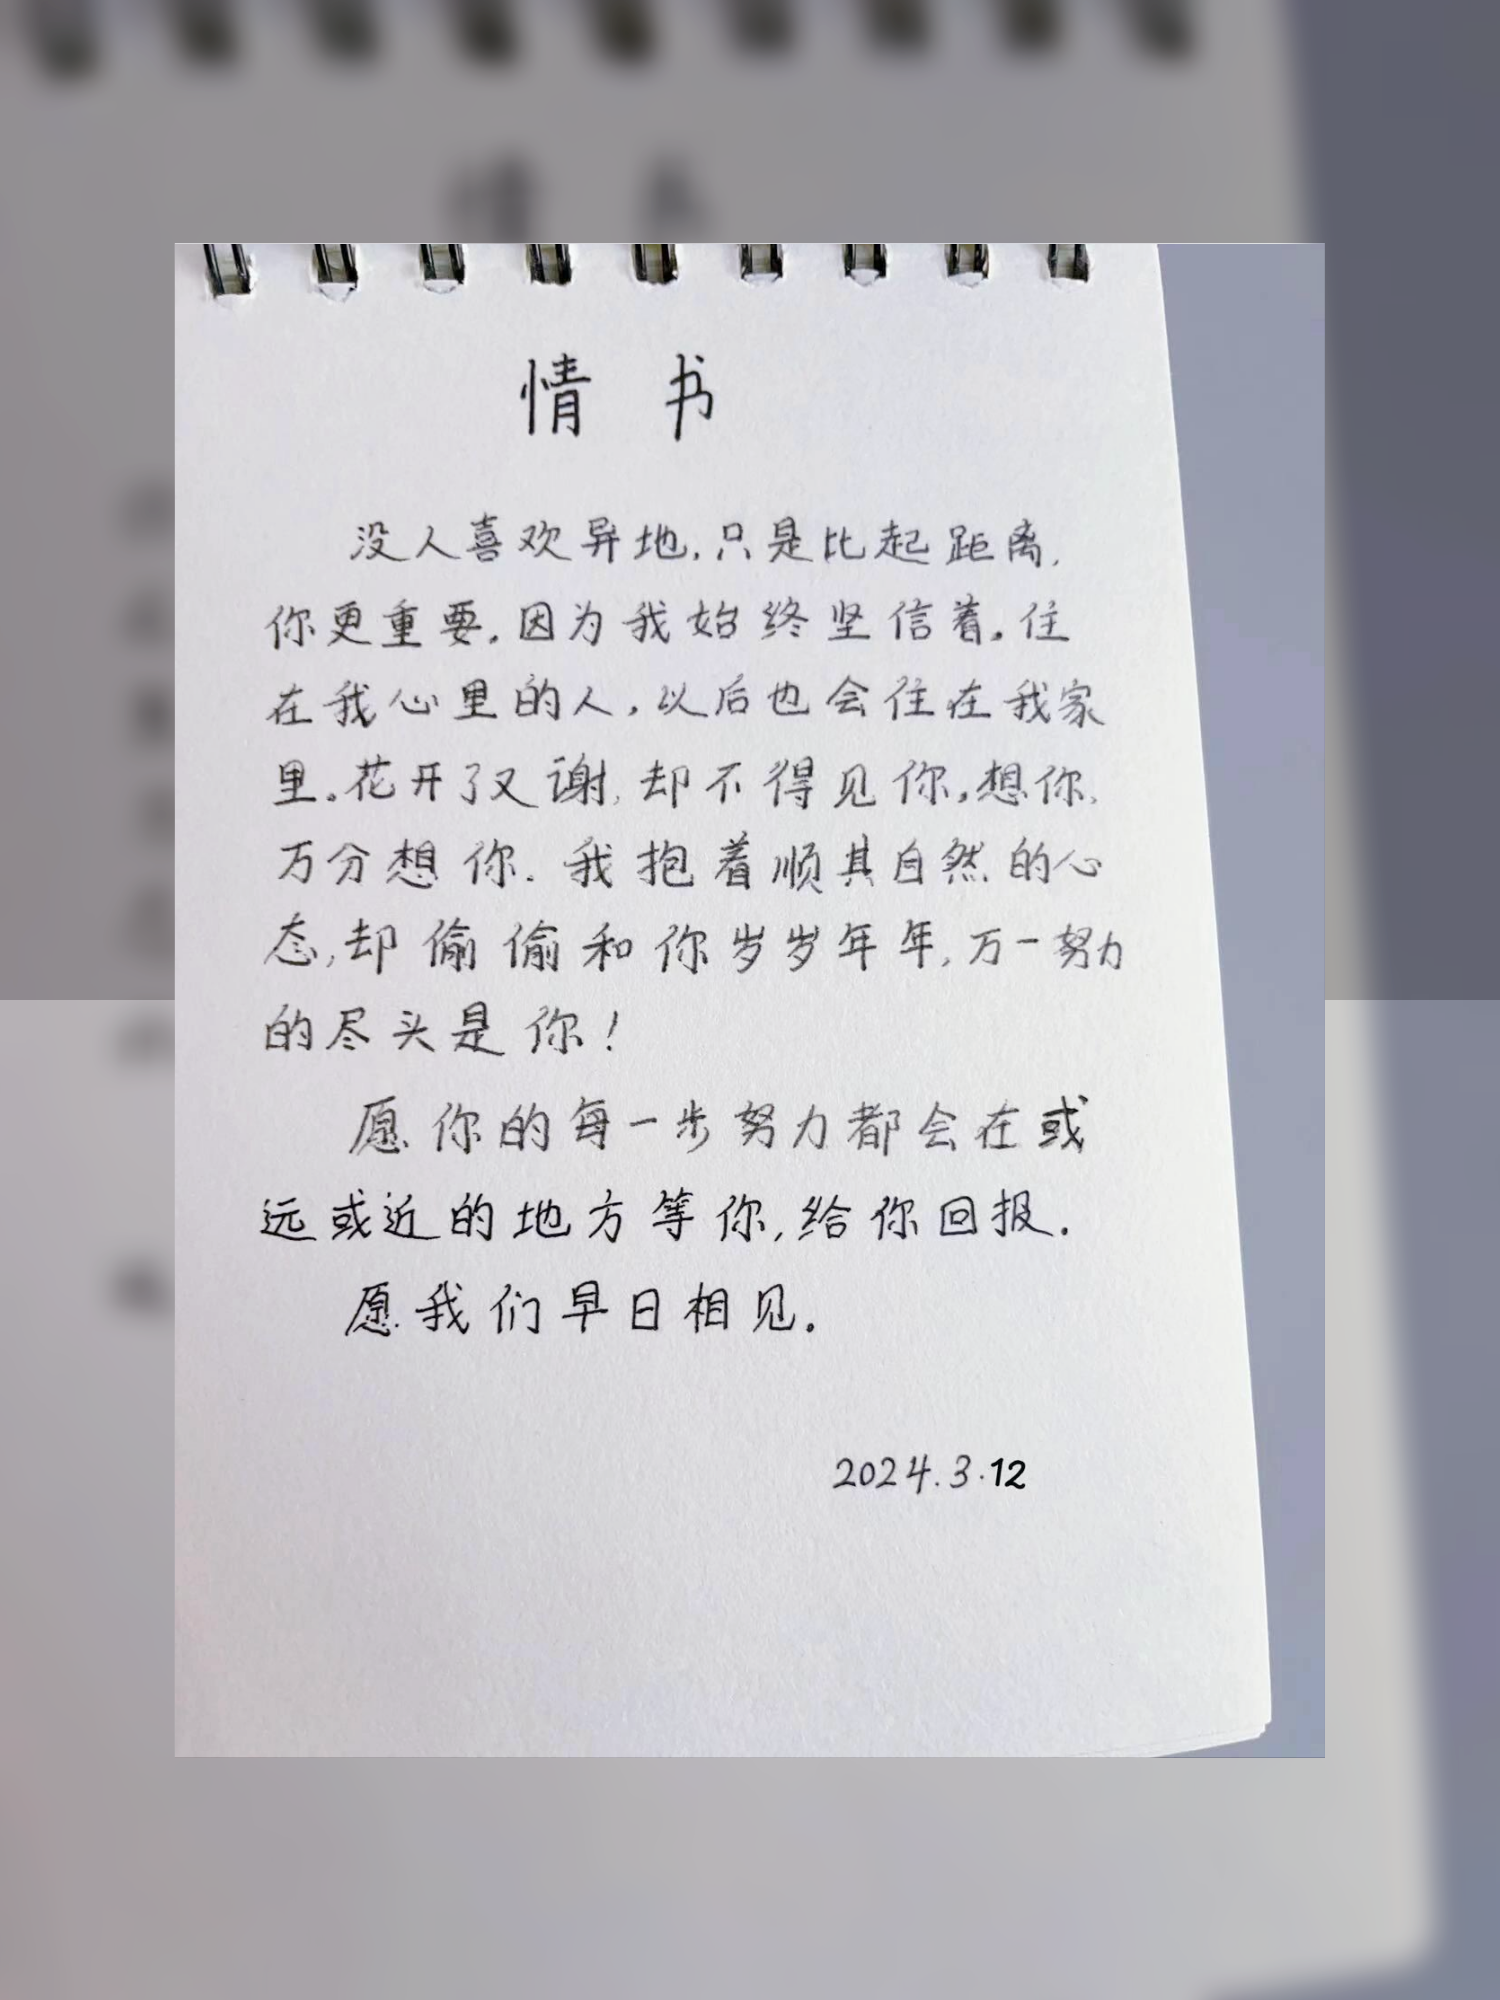 情书
没人喜欢异地,只是比起距离,
你更重要。因为我始终坚信着。住
在我心里的人,以后也会住在我家
里。花开了又谢,却不得见你。想你,
万分想你. 我抱着顺其自然的心
态,却偷偷和你岁岁年年,万一努力
的尽头是你!
愿你的每一步努力都会在或
远或近的地方等你,给你回报.
愿我们早日相见.
2024.3.12